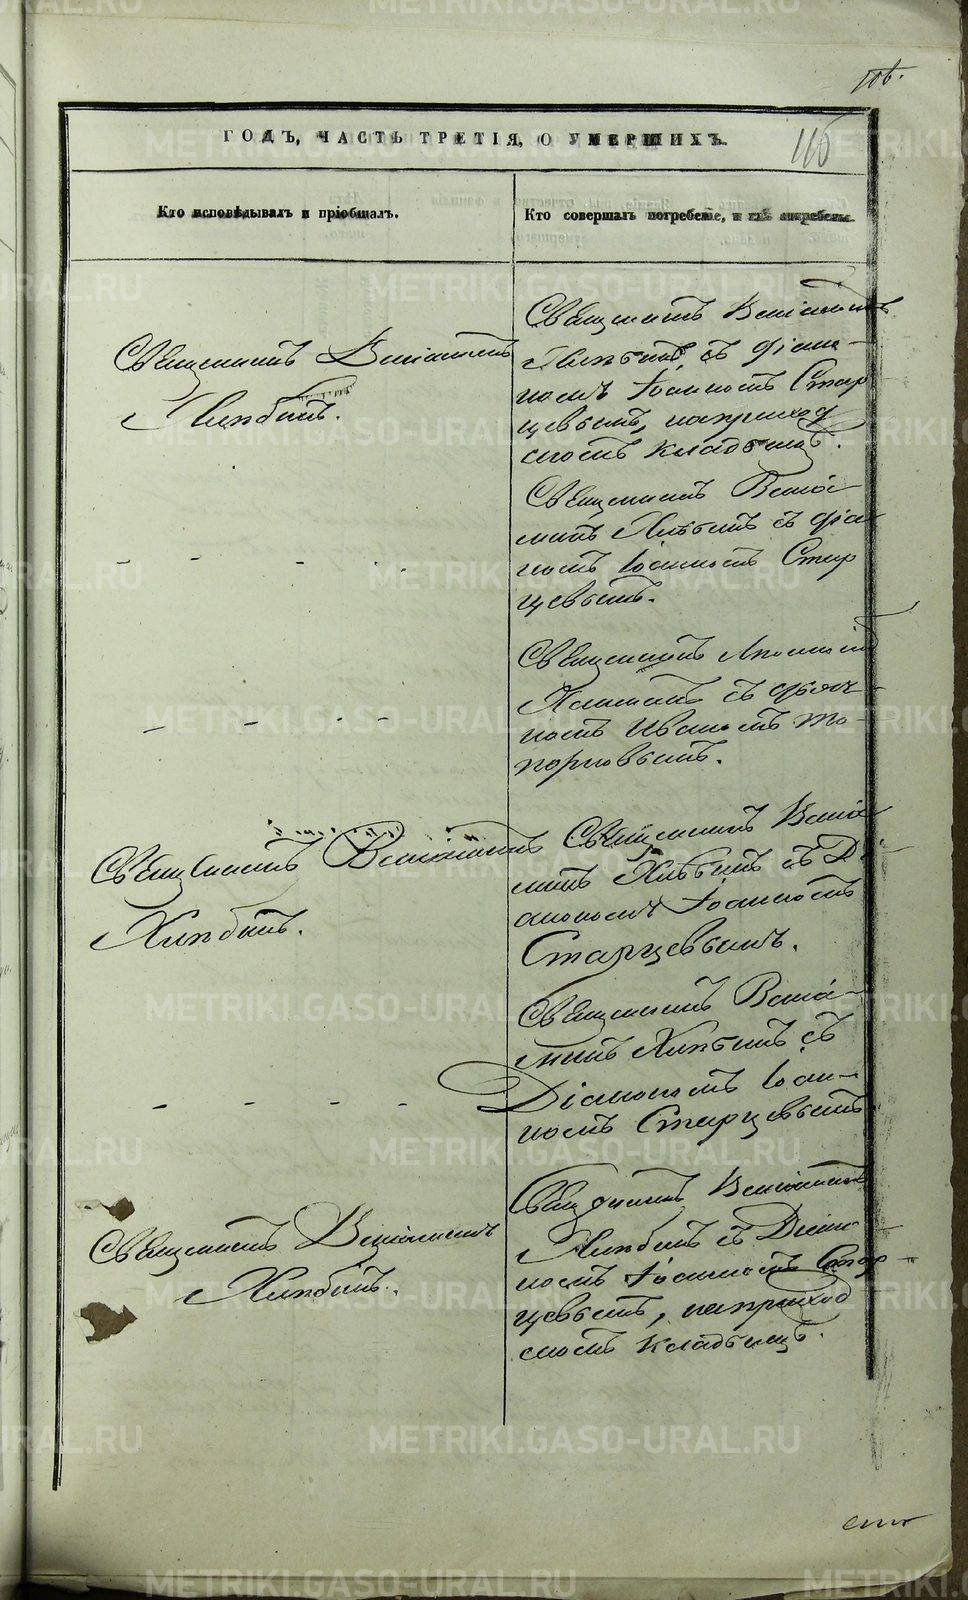 106.
116
ГОДЪ, ЧАСТЬ ТРЕТІЯ, О УМЕРШИХЪ.
Кто исповѣдывалъ и пріобщалъ.
Кто совершалъ погребеніе, и гдѣ погребены.
Священникъ Веніаминъ
Хлѣбинъ.
Священникъ Веніаминъ
Хлѣбинъ съ діако-
номъ Іоанномъ Стар
цевымъ, на приход
скомъ кладбищѣ.
Священникъ Веніа
минъ Хлѣбинъ съ діа
номъ Іоанномъ Стар
цевымъ.
Священникъ
съ дьяч-
комъ Иваномъ То-
порковымъ.
Священникъ Веніаминъ
Хлѣбинъ.
Священникъ Веніа
минъ Хлѣбинъ съ Ді
акономъ Іоанномъ
Старцевымъ.
Священникъ Веніа-
минъ Хлѣбинъ съ
Діакономъ Іоан-
номъ Старцевымъ
Священникъ Веніаминъ
Хлѣбинъ.
Священникъ Веніаминъ
Хлѣбинъ съ Діако
номъ Іоанномъ Стар-
цевымъ, на приход
скомъ кладбищѣ.
METRIKI.GASO-URAL.RU